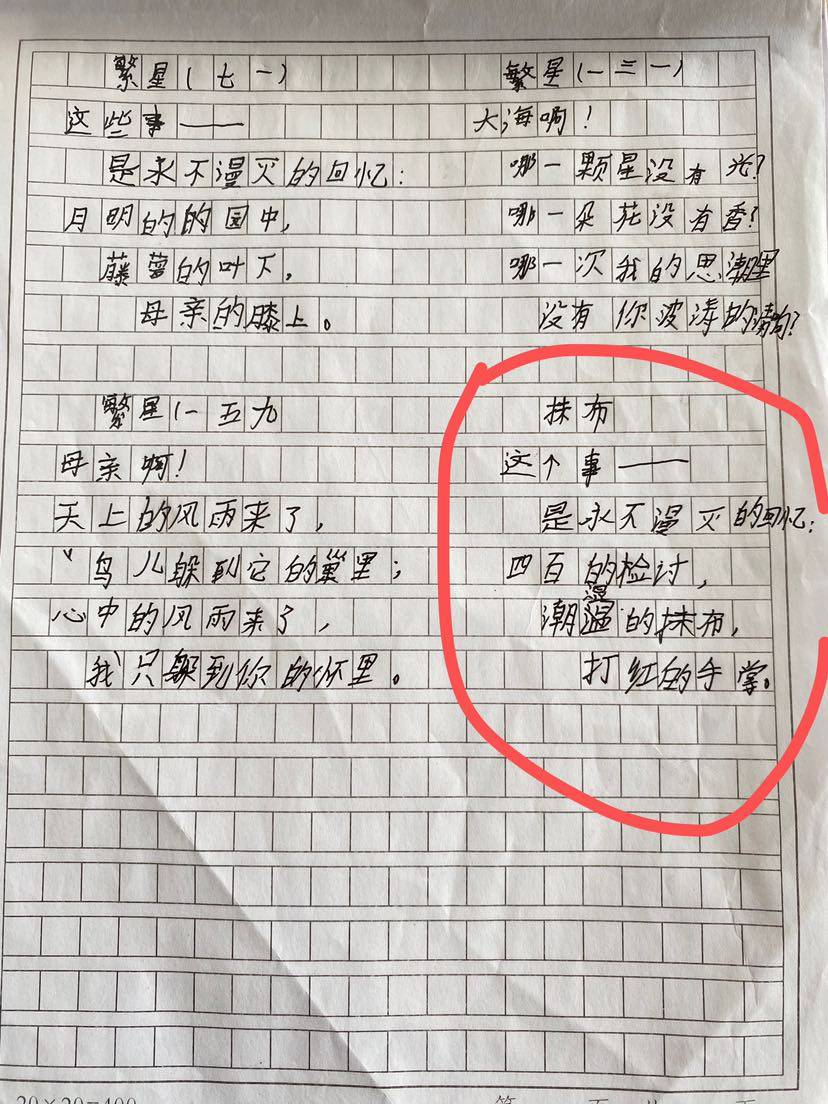 繁星(七一)
这些事——
是永不漫灭的回忆:
月明的的园中,
藤萝的叶下,
母亲的膝上。
繁星(一三一)
大海啊!
哪一颗星没有光?
哪一朵花没有香?
哪一次我的思潮里
没有你波涛的清响?
繁星(一五九
母亲啊!
天上的风雨来了,
鸟儿躲到它的巢里;
心中的风雨来了,
我只躲到你的怀里。
抹布
这个事——
是永不漫灭的回忆:
四百的检讨,
潮湿的抹布,
打红的手掌。
20×20=400